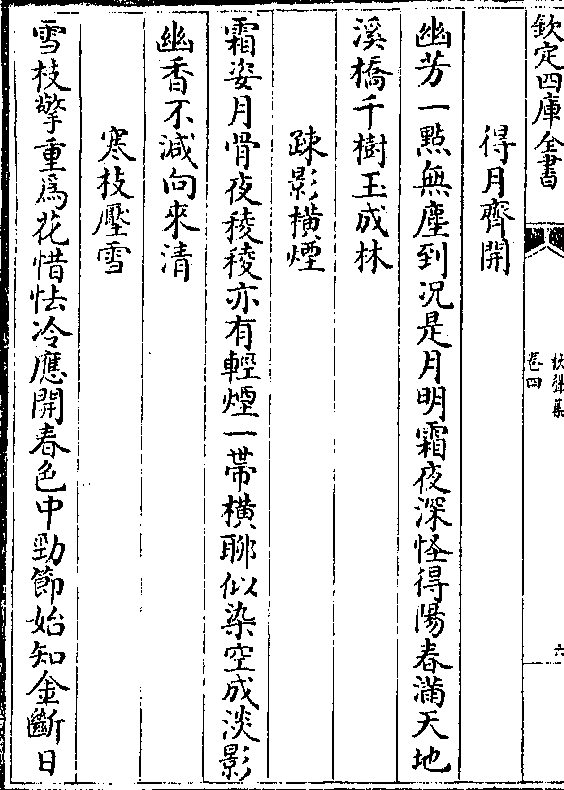 欽定四庫全書
秋聲集
卷四
六
得月齊開
幽芳一點無塵到况是月明霜夜深怪得陽春滿天地
溪橋千樹玉成林
踈影橫煙
霜姿月骨夜稜稜亦有輕煙一帶橫聊似染空成淡影
幽香不減向來清
寒枝壓雪
雪枝擎重爲花惜怯冷應開春色中勁節始知金斷日